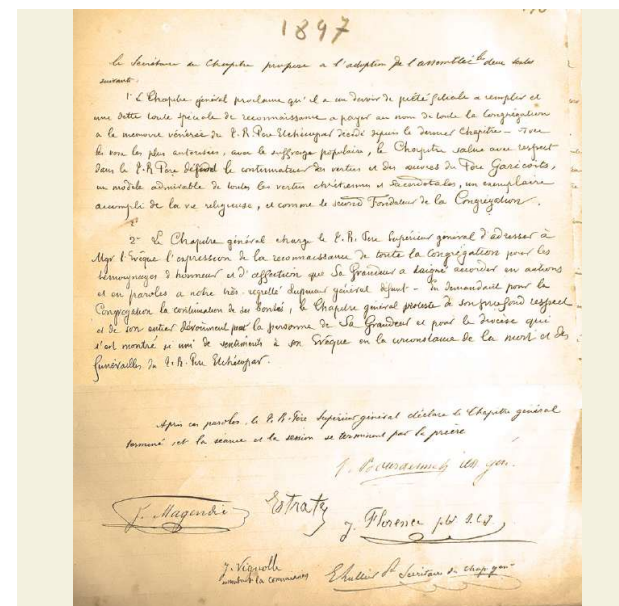 1897
le Secrétaire du Chapitre propose à l'adoption de l'assemblée les deux textes
suivants :
1° Le Chapitre général proclame qu'il a un devoir de piété filiale à remplir et
une dette toute spéciale de reconnaissance à payer au nom de toute la Congrégation
à la mémoire vénérée du T. R. Père Etchécopar décédé depuis le dernier Chapitre - Avec
les voix les plus autorisées, avec le suffrage populaire, le Chapitre salue avec respect
dans le T. R. Père défunt le continuateur des vertus et des œuvres du Père Garicoïts,
un modèle admirable de toutes les vertus chrétiennes et sacerdotales, un exemplaire
accompli de la vie religieuse, et comme le second Fondateur de la Congrégation.
2° Le Chapitre général charge le T. R. Père Supérieur général d'adresser à
Mgr l'Evêque l'expression de la reconnaissance de toute la Congrégation pour les
témoignages d'honneur et d'affection que Sa Grandeur a daigné accorder en actions
et en paroles à notre très regretté Supérieur général défunt - En demandant pour la
Congrégation la continuation de ses bontés, le Chapitre général proteste de son profond respect
et de son entier dévouement pour la personne de Sa Grandeur et pour le diocèse qui
s'est montré si uni de sentiments à son Evêque en la circonstance de la mort et des
funérailles du T. R. Père Etchécopar.
Après ces paroles, le T. R. Père Supérieur général déclare le Chapitre général
terminé, et la séance et la session se terminent par la prière
J. Magendie
Estrate
J. Florence ptr S.C.J.
J. Vignolle
Secrétaire du chap. gén.